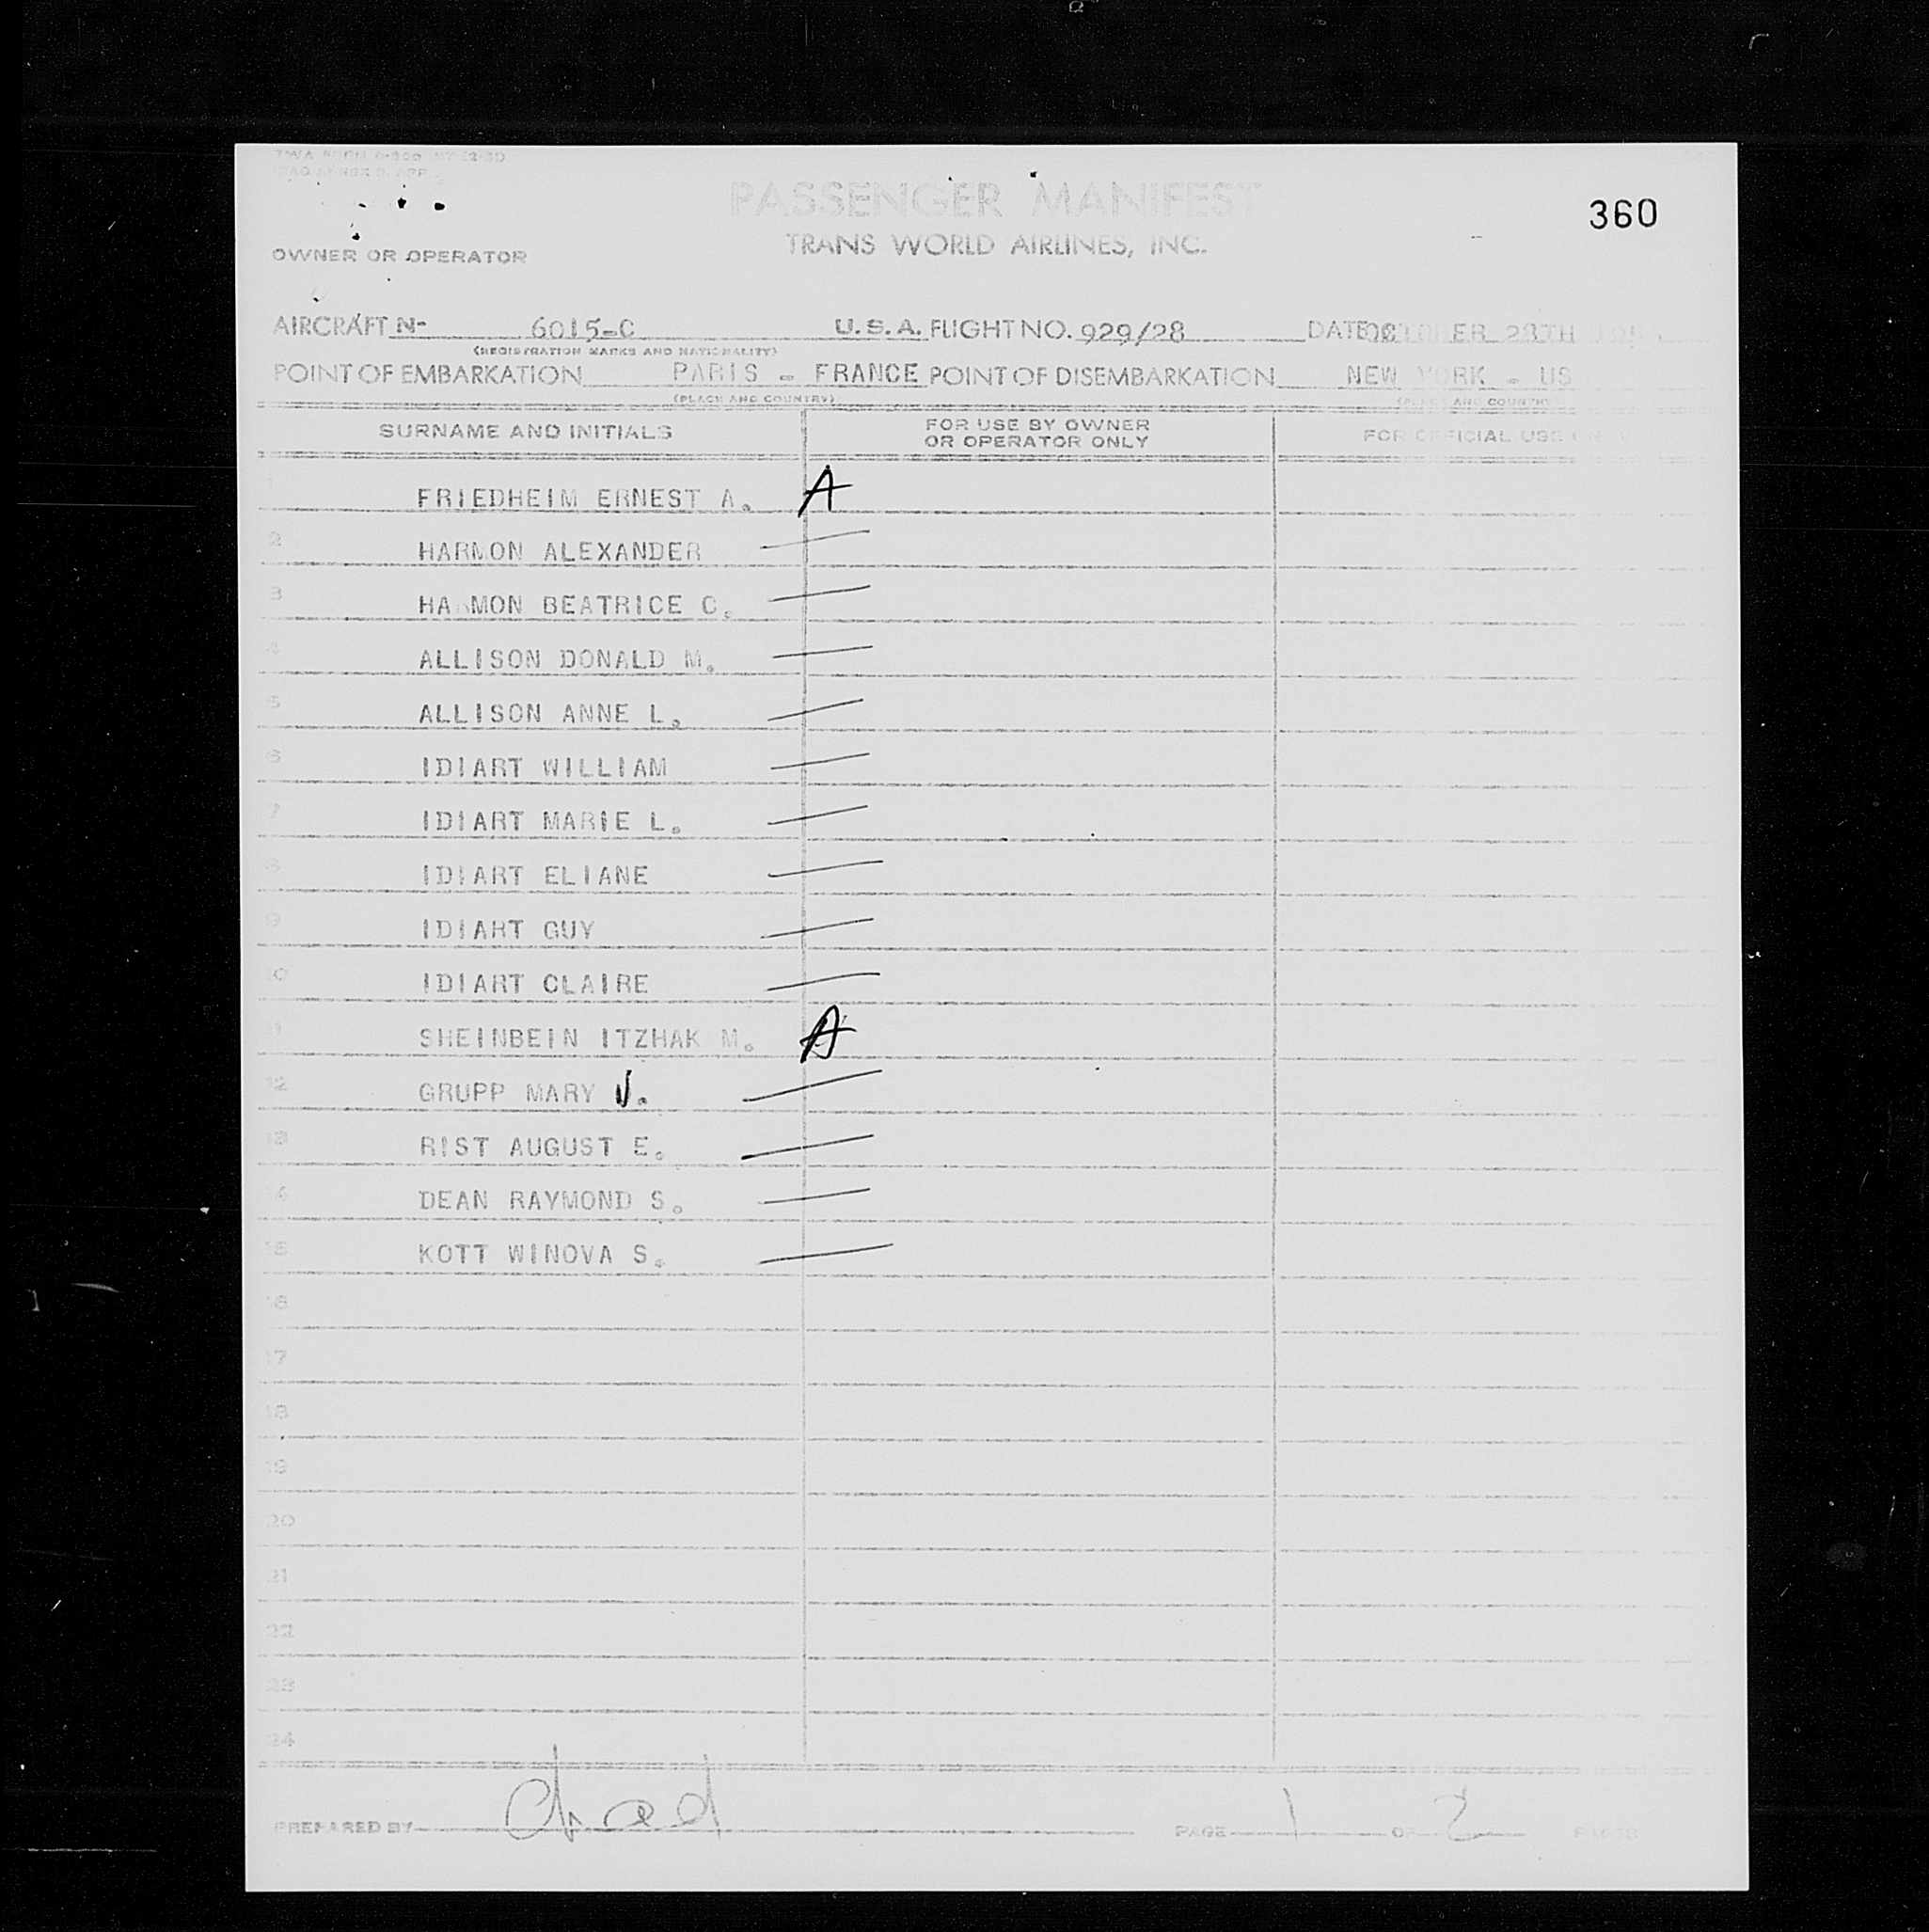 PASSENGER MANIFEST
360
TRANS WORLD AIRLINES, INC.
OWNER OR OPERATOR
AIRCRAFT N- 6015-C U. S. A. FLIGHT NO. 929/28 DATE 28TH
(REGISTRATION MARKS AND NATIONALITY)
POINT OF EMBARKATION PARIS - FRANCE POINT OF DISEMBARKATION NEW YORK - US
(PLACE AND COUNTRY) (PLACE AND COUNTRY)
SURNAME AND INITIALS FOR USE BY OWNER OR OPERATOR ONLY FOR OFFICIAL USE
FRIEDHEIM ERNEST A. A
2 HARMON ALEXANDER
3 HARMON BEATRICE C.
4 ALLISON DONALD M.
5 ALLISON ANNE L.
6 IDIART WILLIAM
7 IDIART MARIE L.
8 IDIART ELIANE
9 IDIART GUY
10 IDIART CLAIRE
11 SHEINBEIN ITZHAK M. A
12 GRUPP MARY J.
13 RIST AUGUST E.
14 DEAN RAYMOND S.
15 KOTT WINOVA S.
16
17
18
19
20
21
22
23
24
PREPARED BY PAGE 1 OF 2